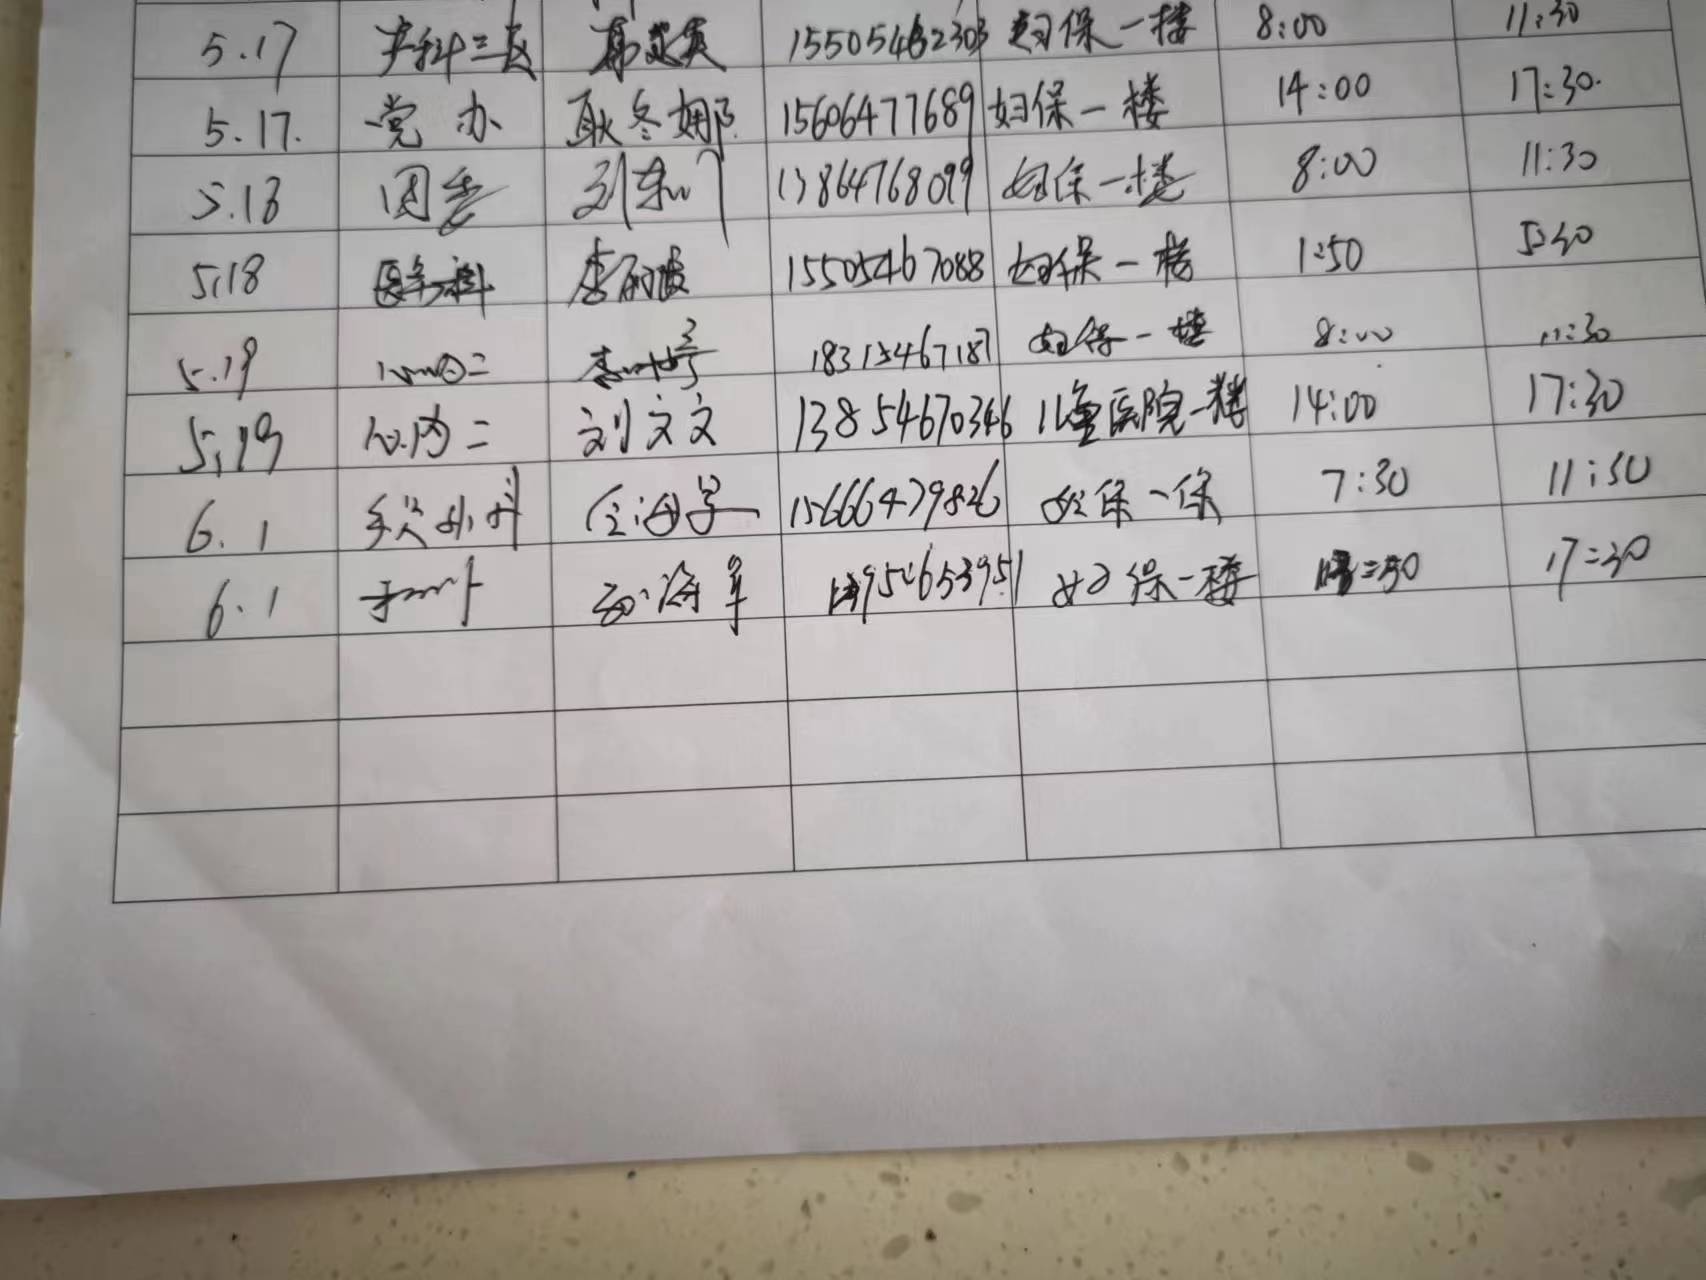 5.17 产科二区 15505462303 妇保一楼 8:00 11:30
5.17. 党办 耿冬娜 15606477689 妇保一楼 14:00 17:30.
5.18 团委 13864768099 妇保一楼 8:00 11:30
5.18 医务科 李丽波 15505467088 妇保一楼 1:50 5:30
5.19 心内二 18315467187 妇保一楼 8:00 11:30
5.19 心内二 刘文文 13854670346 儿童医院一楼 14:00 17:30
6.1 15666479826 妇保一保 7:30 11:30
6.1 妇保一楼 17:30